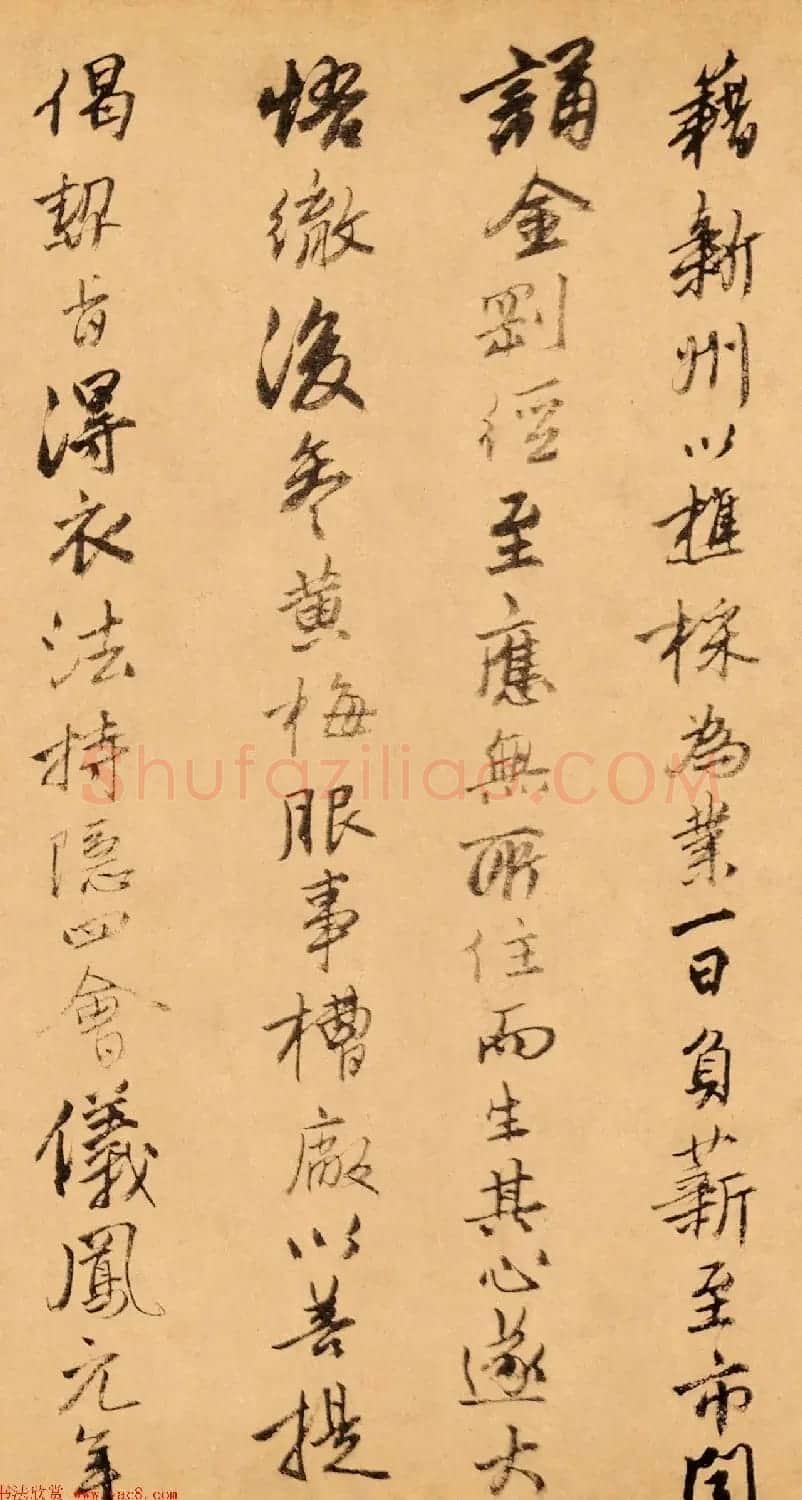 藉新州以樵採為業一日負薪至市聞
誦金剛經至應無所住而生其心遂大
悟徹後参黄梅服事槽廠以菩提
偈契旨得衣法持隱四會儀鳳元年
Shufaziliao.COM
书法欣赏 www.yac8.com